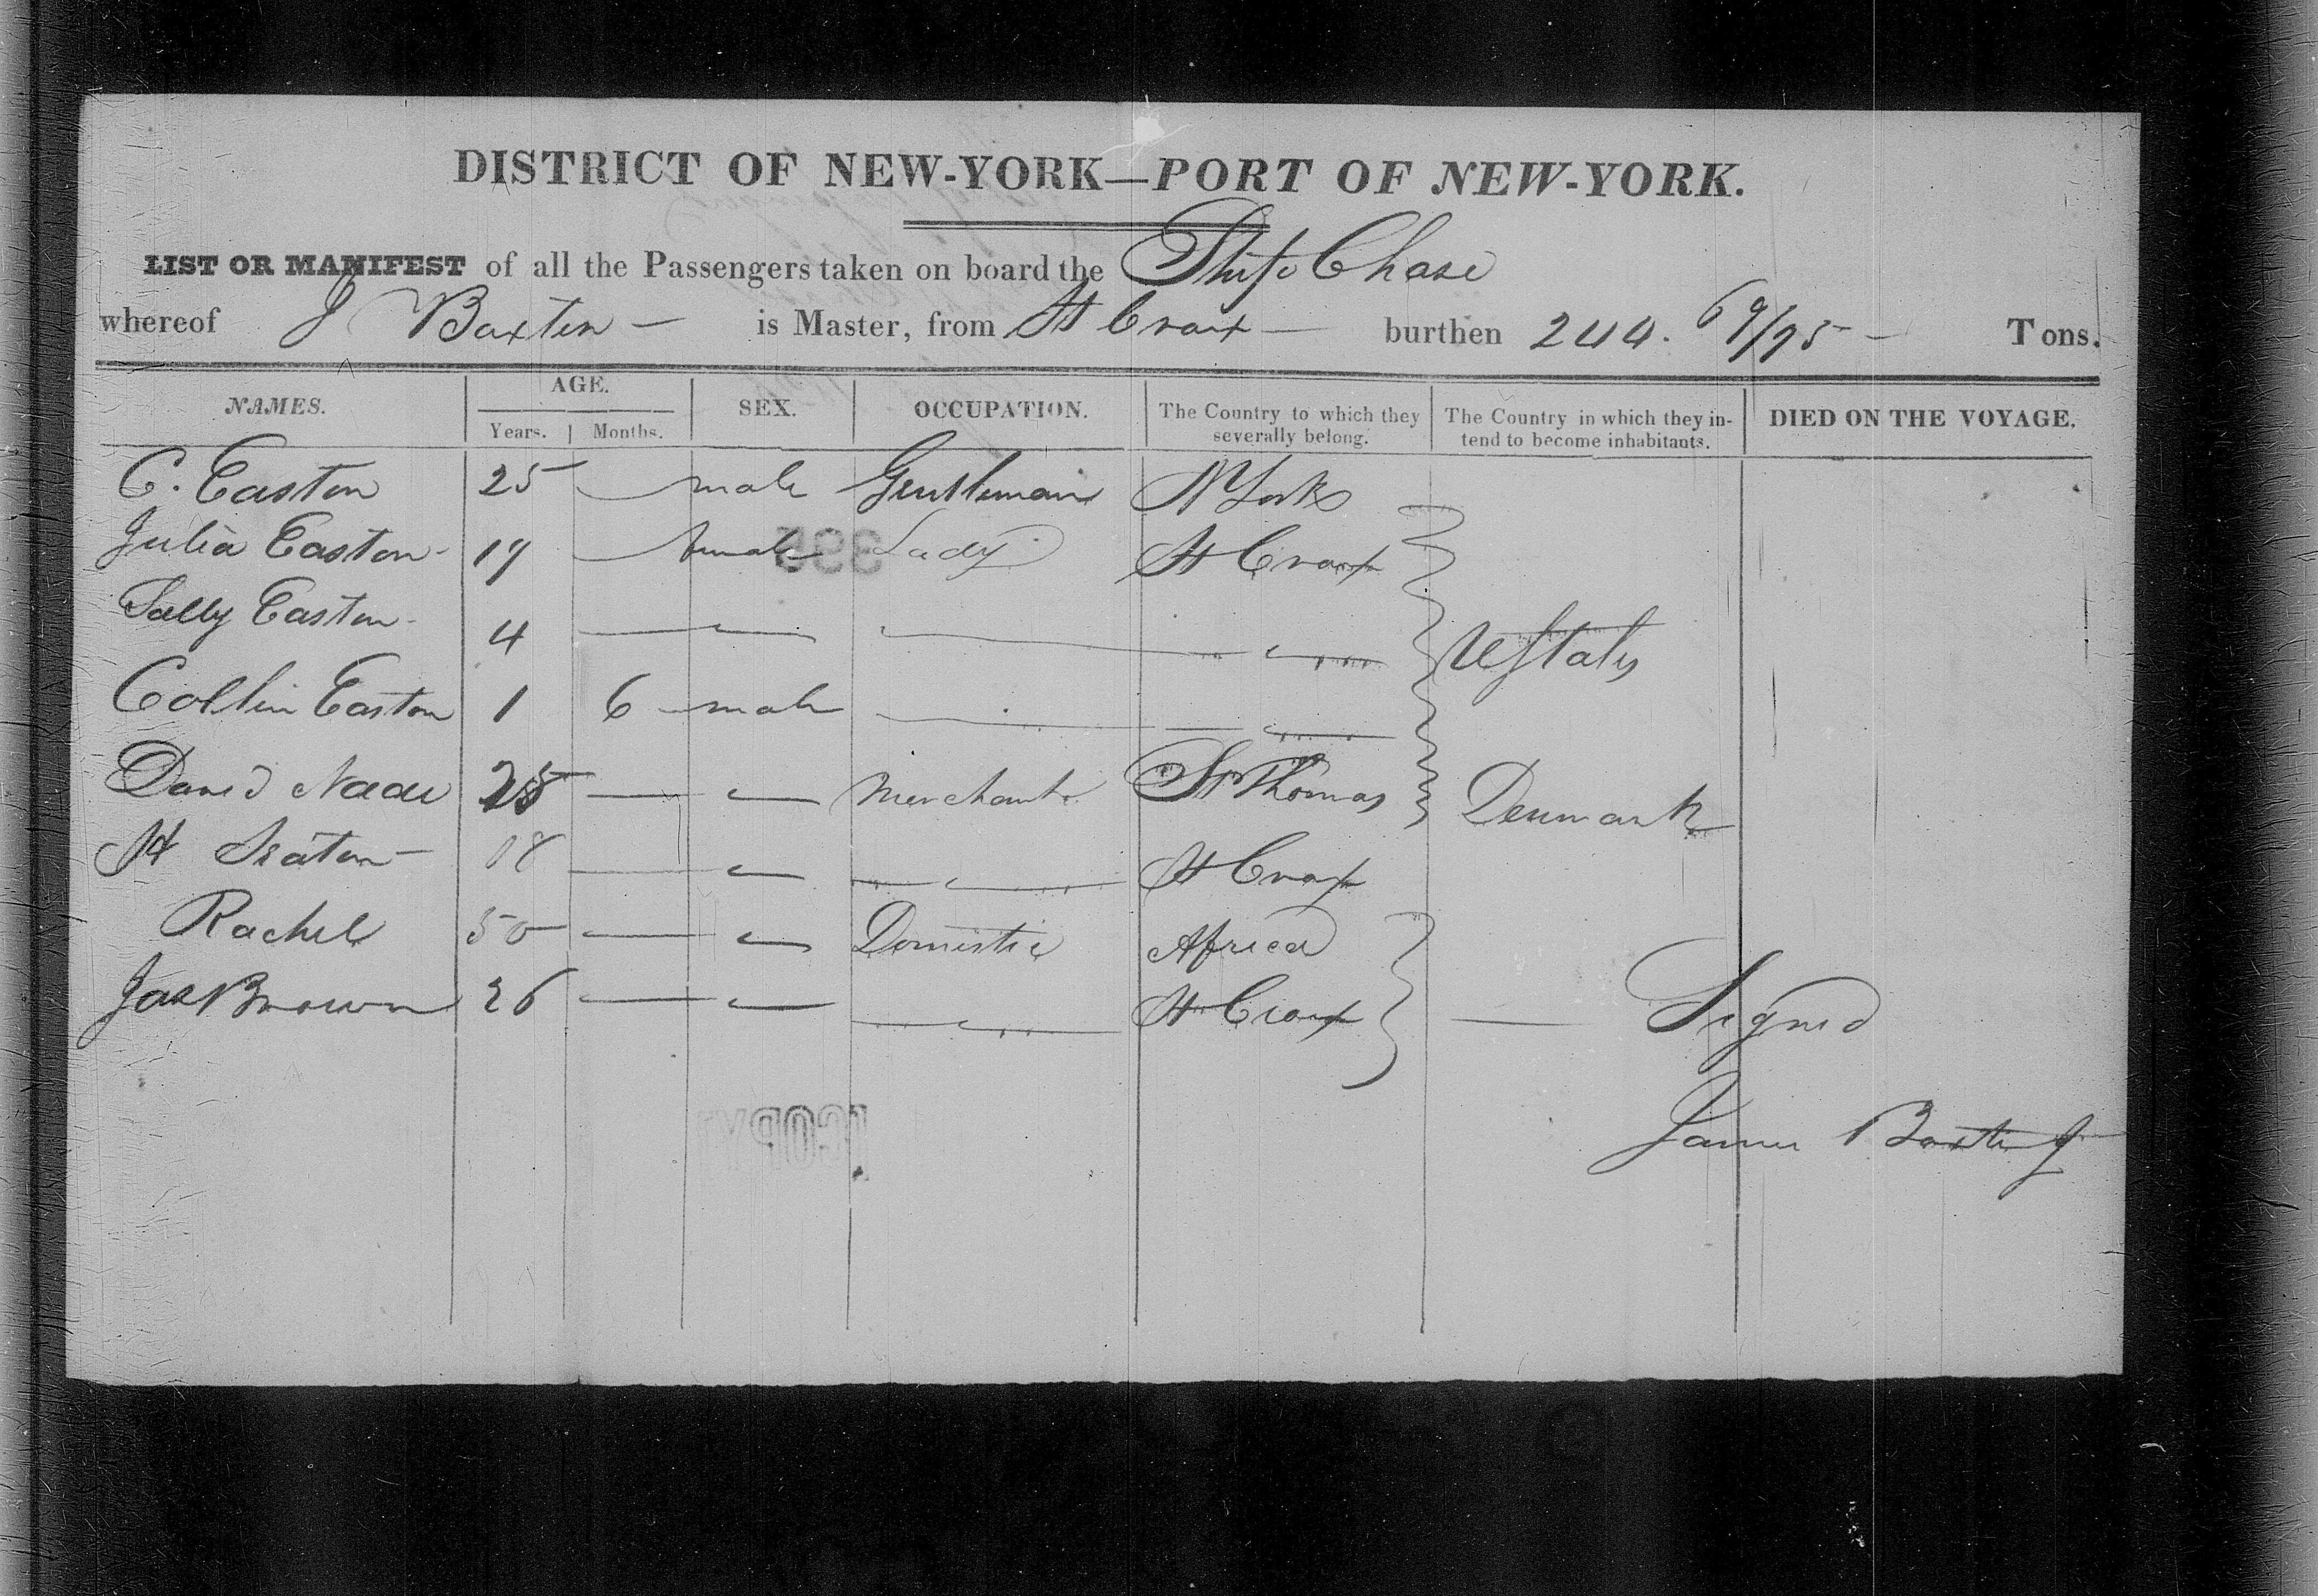 DISTRICT OF NEW-YORK—PORT OF NEW-YORK.
LIST OR MANIFEST of all the Passengers taken on board the Ship Chase
whereof J Baxter — is Master, from St Croix — burthen 244. 69/95 — Tons.
NAMES. AGE. SEX. OCCUPATION. The Country to which they severally belong. The Country in which they intend to become inhabitants. DIED ON THE VOYAGE.
Years. Months.
C. Easton 25 male Gentleman N York
Julia Easton 19 female Lady St Croix
Sally Easton 4 UStates
Collin Easton 1 6 male
David Naar 25 Merchant St Thomas Denmark
H Seaton 18 St Croix
Rachel 50 Domestic Africa
Jas Brown 26 St Croix — Signed
James Baxter Jr
COPY